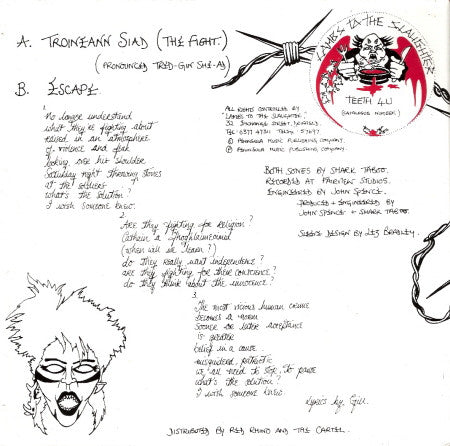 A. TROINEANN SIAD (THE FIGHT.)
(PRONOUNCED TRED-GIN SHE-AD)
B. ESCAPE.
1
No longer understand
what they're fighting about
raised in an atmosphere
of violence and fear
looking over his shoulder
Saturday night throwing stones
at the soldiers
what's the solution?
I wish someone knew.
2.
Are they fighting for religion?
(when will we learn?)
do they really want independence?
are they fighting for there conscience?
do they think about the innocence?
3.
The most vicious human crime
becomes a norm
sooner or later acceptance
is greater
belief in a cause
misguided, pathetic
we all need to stop, to pause
what's the solution?
I wish someone knew.
Lyrics by Gill.
ALL RIGHTS CONTROLLED BY
'LAMBS TO THE SLAUGHTER',
℗ PENINSULA MUSIC PUBLISHING COMPANY.
© PENINSULA MUSIC PUBLISHING COMPANY.
LAMBS TO THE SLAUGHTER
TEETH 4U
(CATALOGUE NUMBER)
BOTH SONGS BY SHARK TABOO.
RECORDED AT FAIRVIEW STUDIOS.
ENGINEERED BY JOHN SPENCE.
PRODUCED + ENGINEERED BY
JOHN SPENCE + SHARK TABOO.
SLEEVE DESIGN BY LIZ BEARLEY.
DISTRIBUTED BY RED RHINO AND THE CARTEL.